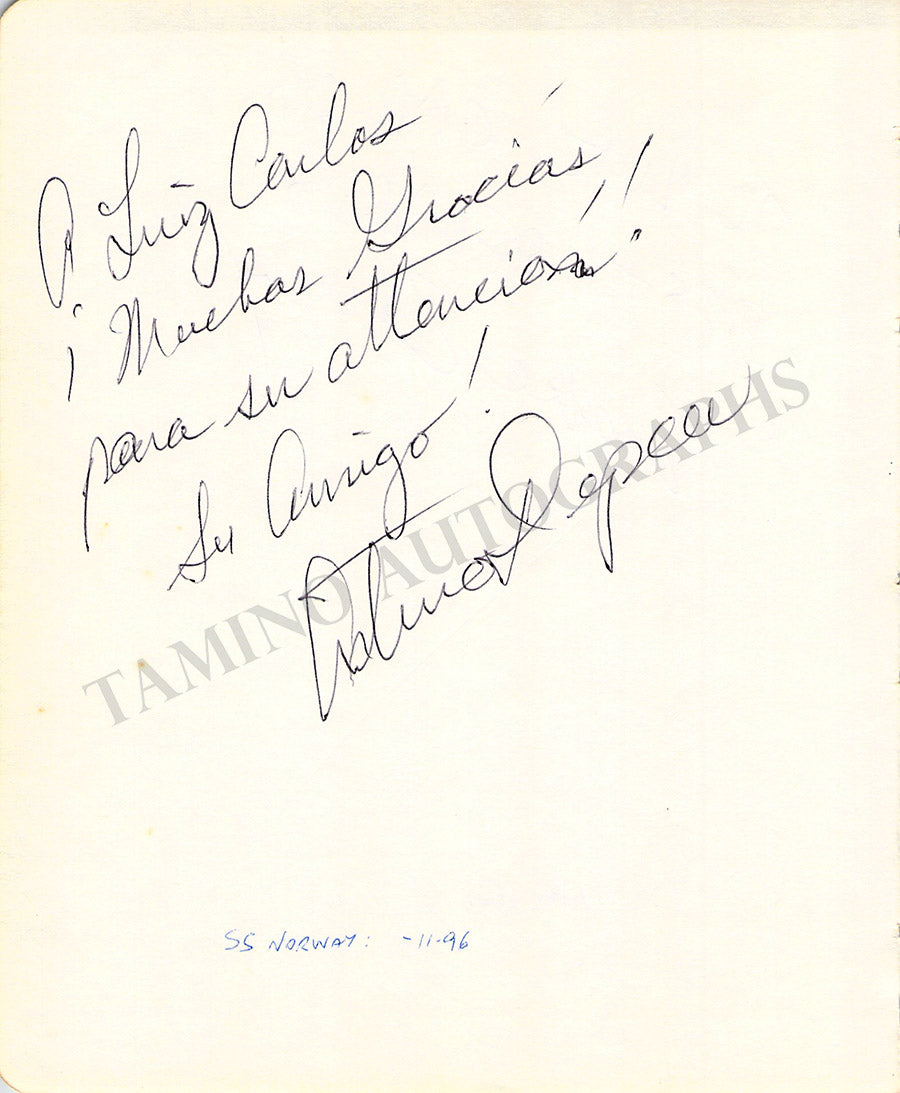 A Luiz Carlos
¡Muchas Gracias!!
para su attención!
Su Amigo!
TAMINO AUTOGRAPHS
SS NORWAY: -11-96